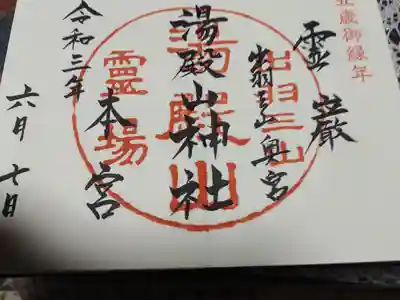 丑歳御縁年
霊巌
出羽三山奥宮
出羽三山
湯殿山神社
湯殿山
本宮
霊場
令和三年
六月七日